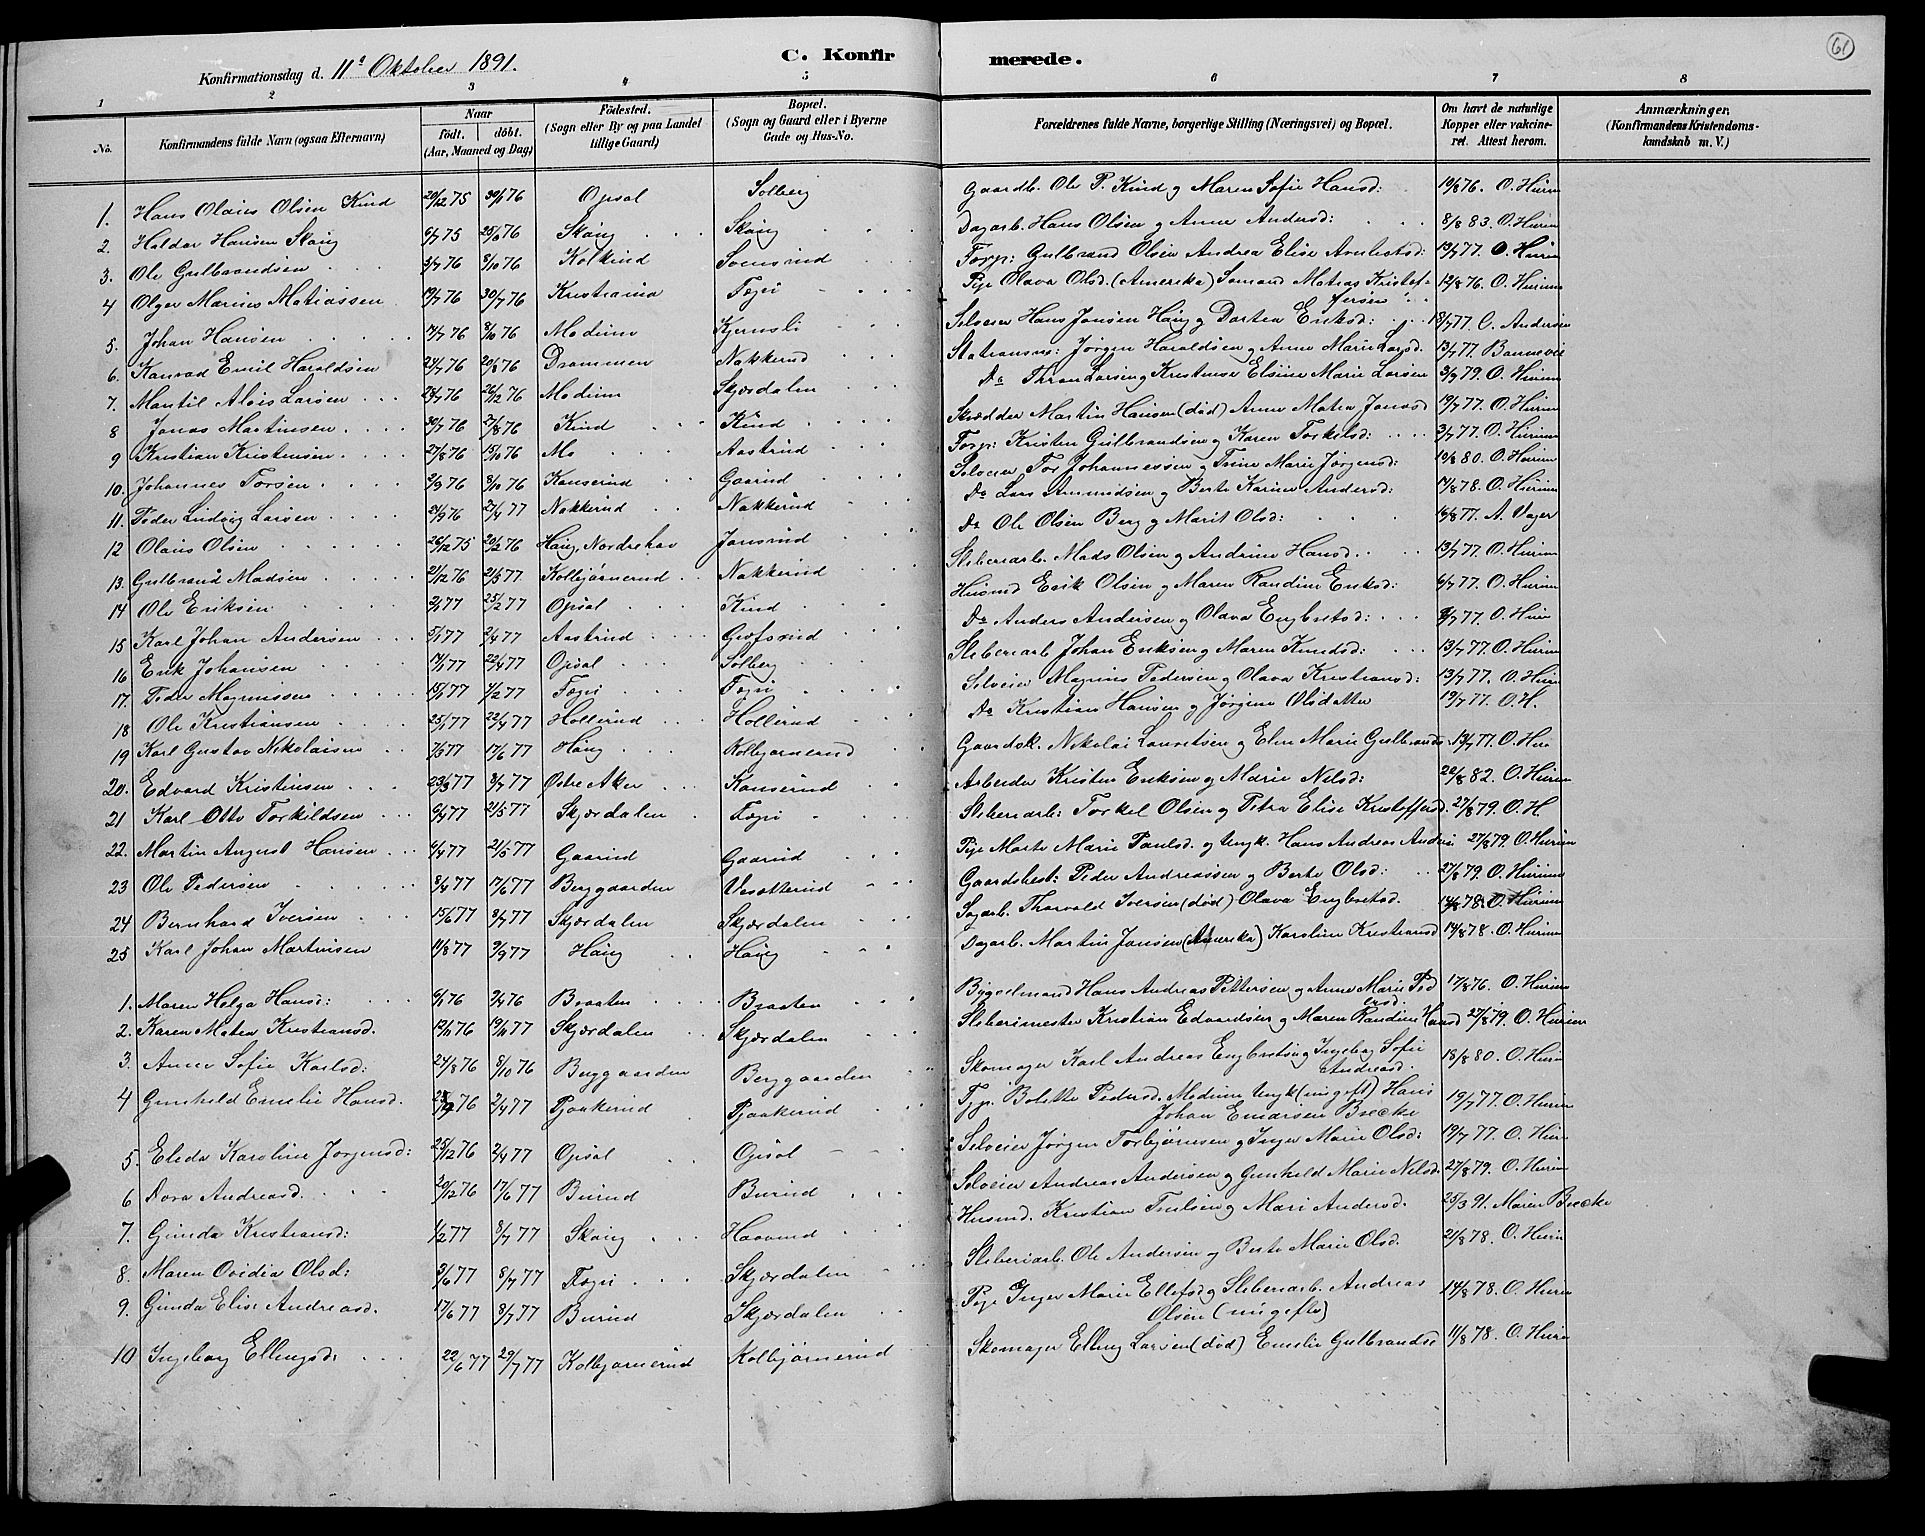 61
Konfirmationsdag d. 11te Oktober 1891. C. Konfirmerede.
1 2 3 4 5 6 7 8
No. Konfirmandens fulde Navn (ogsaa Efternavn) Naar født. døbt. (Aar, Maaned og Dag) Fødested. (Sogn eller By og paa Landet tillige Gaard) Bopæl. (Sogn og Gaard eller i Byerne Gade og Hus-No. Forældrenes fulde Navne, borgerlige Stilling (Næringsvei) og Bopæl. Om havt de naturlige Kopper eller vakcineret. Attest herom. Anmærkninger, (Konfirmandens Kristendomskundskab m. V.)
1. Hans Olaies Olsen Kind 20/12 75 30/1 76 Opsal Solberg Gaardb. Ole P. Kind og Maren Sofie Hansd: 19/8 76. O. Hurum
2. Haldor Hansen Skaug 6/7 75 25/6 76 Skaug Skaug Dagarb. Hans Olsen og Anne Andersd: 8/8 83. O. Hurum
3. Ole Gulbrandsen 3/7 76 8/10 76 Kolkind Svensrud Forp: Gulbrand Olsen Andrea Elise Arnlestsd: 19/7 77. O. Hurum
4 Olger Marius Matiassen 19/7 76 30/7 76 Kristiania Fægri Pige Olava Olsd. (Amerika) Sømand Matias Kristoffersen 12/8 76. O. Hurum
5. Johan Hansen 17/7 76 8/10 76 Modum Kjernsli Selveier Hans Jonsen Haug og Dortea Eriksd: 18/7 77. O. Andersen
6. Konrad Emil Haroldsen 24/7 76 20/8 76 Drammen Nakkerud Stationsm: Jørgen Haroldsen og Anne Marie Larsd. 13/7 77.
7. Mantil Alois Larsen 28/7 76 26/12 76 Modum Skjærdalen Do Thron Larsen og Kristense Elsine Marie Larsen 3/9 79. O. Hurum
8 Jonas Martinsen 30/7 76 27/8 76 Kind Kind Skrædder Martin Hansen (død) Anne Matea Jonasd 19/7 77. O. Hurum
9 Kristian Kristensen 27/8 76 15/10 76 Mo Aastrud Forp: Kristen Gulbrandsen og Karen Torkilsd: 3/7 77. O. Hurum
10. Johannes Torsen 2/9 76 8/10 76 Kanserud Gaarud Selveier Tor Johannessen og Trine Marie Jørgensd: 10/8 80. O. Hurum
11. Peder Ludvig Larsen 24/9 76 27/4 77 Nakkerud Nakkerud Do Lars Amundsen og Berte Karine Andersd: 17/8 78. O. Hurum
12 Olaus Olsen 26/12 75 20/2 76 Haug, Nordrehov Jonsrud Do Ole Olsen Berg og Marit Olsd: 16/8 77. A. Vager
13. Gulbrand Madsen 21/12 76 21/5 77 Kolbjørnerud Nakkerud Sliberiarb. Mads Olsen og Andrine Hansd. 13/7 77. O. Hurum
14 Ole Eriksen 2/1 77 25/2 77 Opsal Kind Husmd Erik Olsen og Maren Randine Eriksd: 6/7 77. O. Hurum
15 Karl Johan Andersen 5/1 77 2/4 77 Aastrud Græfsrud Do Anders Andersen og Olava Engbretsd: 9/7 77. O. Hurum
16 Erik Johansen 14/1 77 22/4 77 Opsal Solberg Sliberiarb Johan Eriksen og Maren Knudsd: 13/7 77. O. Hurum
17. Peder Magnussen 15/1 77 4/2 77 Fægri Fægri Selveier Magnus Pedersen og Olava Kristiansd: 13/7 77. O. Hurum
18 Ole Kristiansen 25/1 77 22/4 77 Hollerud Hollerud Do Kristian Hansen og Jørgine Olsdatter 19/7 77. O. H.
19 Karl Gustav Nikolaisen 7/3 77 17/6 77 Haug Kolbjørnerud Gaardsk. Nikolai Lauritsen og Elen Marie Gulbrands. 13/7 77. O. Hur
20. Edvard Kristensen 23/3 77 8/7 77 Østre Aker Kanserud Arbeider Kristen Eriksen og Marie Nilsd: 20/8 82. O. Hurum
21 Karl Otto Torkildsen 6/4 77 21/5 77 Skjærdalen Fægri Sliberiarb: Torkel Olsen og Petra Elise Kristoffersd. 27/8 79. O. H
22. Martin August Hansen 6/4 77 21/5 77 Gaarud Gaarud Pige Marte Marie Paulsd. og Ungk. Hans Andreas Anders 27/8 79. O. Hurum
23 Ole Pedersen 8/4 77 17/6 77 Berggaarden Vesetterud Gaardsbest: Peder Andreassen og Berte Olsd: 27/8 79. O. Hurum
24 Bernhard Iversen 15/6 77 8/7 77 Skjærdalen Skjærdalen Sagarb. Thorvald Iversen (død) Olava Engbretsd. 14/8 78. O. Hurum
25 Karl Johan Martinsen 11/8 77 9/9 77 Haug Haug Dagarb. Martin Jonsen (Amerika) Karoline Kristiansd 14/8 78. O. Hurum
1. Maren Helga Hansd: 6/1 76 2/4 76 Braaten Braaten Bygselmand Hans Andreas Pettersen og Anne Marie Pedersd. 17/8 76. O. Hurum
2. Karen Matea Kristiansd. 12/1 76 19/11 77 Skjærdalen Skjærdalen Sliberimester Kristian Edvardsen og Maren Randine Hansd 27/8 79. O. Hurum
3. Anne Sofie Karlsd: 24/8 76 8/10 76 Berggaarden Berggaarden Skomager Karl Andreas Engbretsen og Ingeborg Sofie Andreasd. 18/8 80. O. Hurum
4 Gunhild Emelie Hansd. 76 2/4 77 Pjaakerud Pjaakerud Bolette Pedersd. Modum Ungk (ungift) Hans Johan Enarsen Brecke 19/7 77. O. Hurum
5. Elida Karoline Jørgensd: 25/12 76 2/4 77 Opsal Opsal Selveier Jørgen Torbjørnsen og Inger Marie Olsd: 19/7 77. O. Hur
6 Dora Andreasd. 20/12 76 17/6 77 Burud Burud Selveier Andreas Andersen og Gunhild Marie Nilsd. 27/8 79. O. Hurum
7. Gunda Kristiansd: 1/2 77 8/7 77 Skaug Haavrud Husmd. Kristian Truelsen og Mari Andersd. 25/3 91. Maren Brecke
8. Maren Ovidia Olsd: 3/6 77 8/7 77 Fægri Skjærdalen Sliberiarb. Ole Andersen og Berte Marie Olsd. 21/8 78. O. Hurum
9. Gunda Elise Andreasd. 17/6 77 8/7 77 Burud Skjærdalen Pige Inger Marie Ellefsd og Sliberiarb. Andreas Olsen (ungifte) 14/8 78. O. Hurum
10 Ingeborg Ellingsd: 22/6 77 29/7 77 Kolbjørnerud Kolbjørnerud Skomager Elling Larsen (død) Emelie Gulbrandsd 11/8 78. O. Hurum